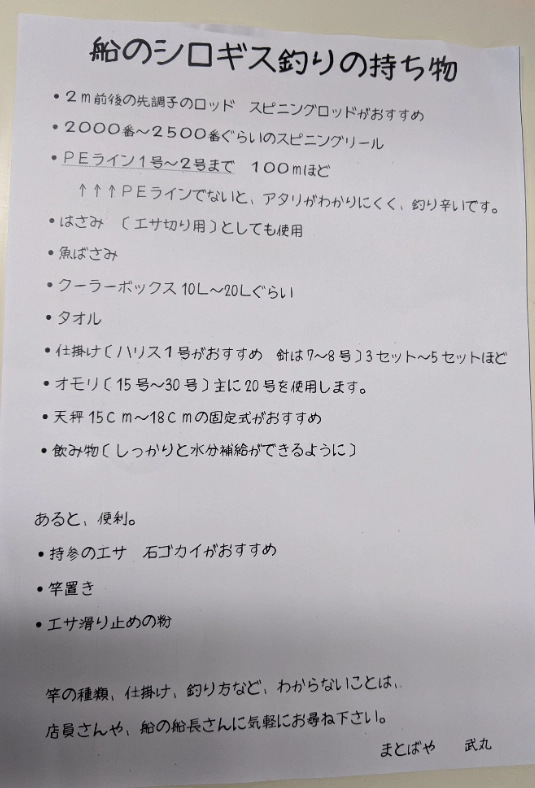 船のシロギス釣りの持ち物
・２ｍ前後の先調子のロッド　スピニングロッドがおすすめ
・２０００番～２５００番ぐらいのスピニングリール
・ＰＥライン１号～２号まで　１００ｍほど
↑↑↑ＰＥラインでないと、アタリがわかりにくく、釣り辛いです。
・はさみ　〔エサ切り用〕としても使用
・魚ばさみ
・クーラーボックス 10L～20Lぐらい
・タオル
・仕掛け〔ハリス１号がおすすめ　針は7～8号〕3セット～5セットほど
・オモリ〔15号～30号〕主に20号を使用します。
・天秤 15Ｃｍ～18Ｃｍの固定式がおすすめ
・飲み物〔しっかりと水分補給ができるように〕
あると、便利。
・持参のエサ　石ゴカイがおすすめ
・竿置き
・エサ滑り止めの粉
竿の種類、仕掛け、釣り方など、わからないことは、
店員さんや、船の船長さんに気軽にお尋ね下さい。
まとばや　武丸